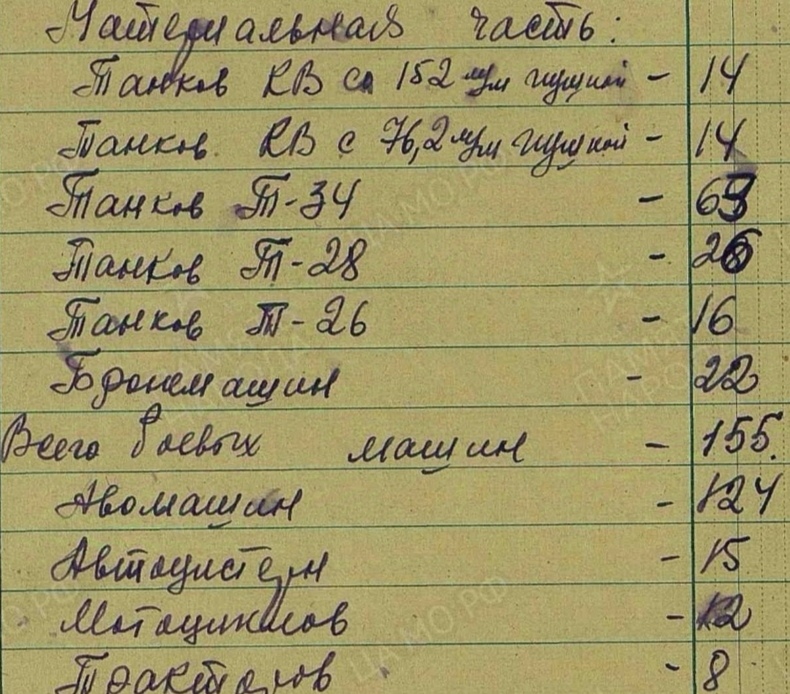 Материальная часть:
Танков КВ со 152 мм пушкой - 14
Танков КВ с 76,2 мм пушкой - 14
Танков Т-34 - 63
Танков Т-28 - 26
Танков Т-26 - 16
Бронемашин - 22
Всего боевых машин - 155.
Авомашин - 124
Автоцистерн - 15
Мотоциклов - 12
Тракторов - 8